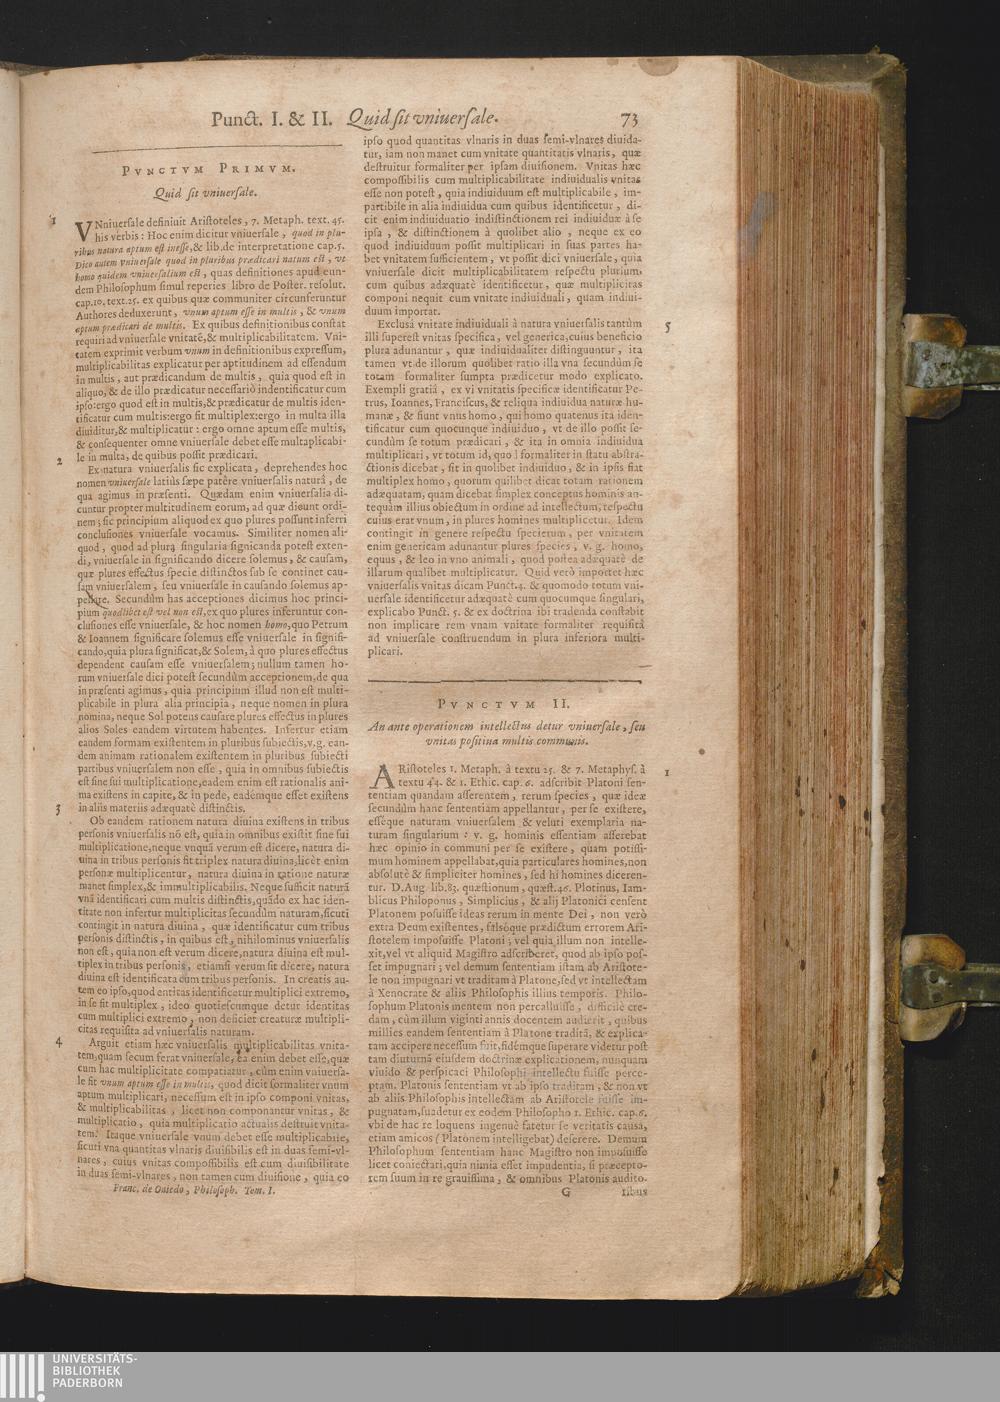 Punct. I. & II. Quid sit vniuersale. 73
PVNCTVM PRIMVM.
Quid sit vniuersale.
1
VNniuersale definiuit Aristoteles, 7. Metaph. text. 45.
his verbis: Hoc enim dicitur vniuersale, quod in plu-
ribus natura aptum est inesse, & lib. de interpretatione cap. 5.
Dico autem vniuersale quod in pluribus prædicari natum est, vt
homo quidem vniuersalium est, quas definitiones apud eun-
dem Philosophum simul reperies libro de Poster. resolut.
cap. 10. text. 25. ex quibus quæ communiter circunferuntur
Authores deduxerunt, vnum aptum esse in multis, & vnum
aptum prædicari de multis. Ex quibus definitionibus constat
requiri ad vniuersale vnitatẽ, & multiplicabilitatem. Vni-
tatem exprimit verbum vnum in definitionibus expressum,
multiplicabilitas explicatur per aptitudinem ad essendum
in multis, aut prædicandum de multis, quia quod est in
aliquo, & de illo prædicatur necessariò indentificatur cum
ipso: ergo quod est in multis, & prædicatur de multis iden-
tificatur cum multis: ergo fit multiplex: ergo in multa illa
diuiditur, & multiplicatur: ergo omne aptum esse multis,
& consequenter omne vniuersale debet esse multaplicabi-
le in multa, de quibus possit prædicari.
2
Ex natura vniuersalis sic explicata, deprehendes hoc
nomen vniuersale latiùs sæpe patêre vniuersalis naturâ, de
qua agimus in præsenti. Quædam enim vniuersalia di-
cuntur propter multitudinem eorum, ad quæ dicunt ordi-
nem; sic principium aliquod ex quo plures possunt inferri
conclusiones vniuersale vocamus. Similiter nomen ali-
quod, quod ad plura singularia signicanda potest exten-
di, vniuersale in significando dicere solemus, & causam,
quæ plures effectus specie distinctos sub se continet cau-
sam vniuersalem, seu vniuersale in causando solemus ap-
pellare. Secundùm has acceptiones dicimus hoc princi-
pium quodlibet est vel non est, ex quo plures inferuntur con-
clusiones esse vniuersale, & hoc nomen homo, quo Petrum
& Ioannem significare solemus esse vniuersale in signifi-
cando, quia plura significat, & Solem, à quo plures effectus
dependent causam esse vniuersalem; nullum tamen ho-
rum vniuersale dici potest secundùm acceptionem, de qua
in præsenti agimus, quia principium illud non est multi-
plicabile in plura alia principia, neque nomen in plura
nomina, neque Sol potens causare plures effectus in plures
alios Soles eandem virtutem habentes. Infertur etiam
eandem formam existentem in pluribus subiectis, v.g. ean-
dem animam rationalem existentem in pluribus subiecti
partibus vniuersalem non esse, quia in omnibus subiectis
est sine sui multiplicatione, eadem enim est rationalis ani-
ma existens in capite, & in pede, eadémque esset existens
in aliis materiis adæquatè distinctis.
3
Ob eandem rationem natura diuina existens in tribus
personis vniuersalis nõ est, quia in omnibus existit sine sui
multiplicatione, neque vnquã verum est dicere, natura di-
uina in tribus personis fit triplex natura diuina, licèt enim
personæ multiplicentur, natura diuina in ratione naturæ
manet simplex, & immultiplicabilis. Neque sufficit naturã
vnã identificati cum multis distinctis, quãdo ex hac iden-
titate non infertur multiplicitas secundùm naturam, sicuti
contingit in natura diuina, quæ identificatur cum tribus
personis distinctis, in quibus est, nihilominus vniuersalis
non est, quia non est verum dicere, natura diuina est mul-
tiplex in tribus personis, etiamsi verum sit dicere, natura
diuina est identificata cum tribus personis. In creatis au-
tem eo ipso, quod entitas identificetur multiplici extremo,
in se fit multiplex, ideo quotiescumque detur identitas
cum multiplici extremo, non deficiet creaturæ multipli-
citas requisita ad vniuersalis naturam.
4
Arguit etiam hæc vniuersalis multiplicabilitas vnita-
tem, quam secum ferat vniuersale, ea enim debet esse, quæ
cum hac multiplicitate compatiatur, cùm enim vniuersa-
le sit vnum aptum esse in multis, quod dicit formaliter vnum
aptum multiplicari, necessum est in ipso componi vnitas,
& multiplicabilitas, licet non componantur vnitas, &
multiplicatio, quia multiplicatio actualis destruit vnita-
tem. Itaque vniuersale vnum debet esse multiplicabile,
sicuti vna quantitas vlnaris diuisibilis est in duas semi-vl-
nares, cuius vnitas compossibilis est cum diuisibilitate
in duas semi-vlnares, non tamen cum diuisione, quia eo
Franc. de Ouiedo, Philosoph. Tom. I.
ipso quod quantitas vlnaris in duas semi-vlnares diuida-
tur, iam non manet cum vnitate quantitatis vlnaris, quæ
destruitur formaliter per ipsam diuisionem. Vnitas hæc
compossibilis cum multiplicabilitate indiuidualis vnitas
esse non potest, quia indiuiduum est multiplicabile, im-
partibile in alia indiuidua cum quibus identificetur, di-
cit enim indiuiduatio indistinctionem rei indiuiduæ à se
ipsa, & distinctionem à quolibet alio, neque ex eo
quod indiuiduum possit multiplicari in suas partes ha-
bet vnitatem sufficientem, vt possit dici vniuersale, quia
vniuersale dicit multiplicabilitatem respectu plurium,
cum quibus adæquatè identificetur, quæ multiplicitas
componi nequit cum vnitate indiuiduali, quam indiui-
duum importat.
5
Exclusâ vnitate indiuiduali à natura vniuersalis tantùm
illi superest vnitas specifica, vel generica, cuius beneficio
plura adunantur, quæ indiuidualiter distinguuntur, ita
tamen vt de illorum quolibet ratio illa vna secundùm se
totam formaliter sumpta prædicetur modo explicato.
Exempli gratiâ, ex vi vnitatis specificæ identificatur Pe-
trus, Ioannes, Franciscus, & reliqua indiuidua naturæ hu-
manæ, & fiunt vnus homo, qui homo quatenus ita iden-
tificatur cum quocunque indiuiduo, vt de illo possit se-
cundùm se totum prædicari, & ita in omnia indiuidua
multiplicari, vt totum id, quod formaliter in statu abstra-
ctionis dicebat, sit in quolibet indiuiduo, & in ipsis fiat
multiplex homo, quorum quilibet dicat totam rationem
adæquatam, quam dicebat simplex conceptus hominis an-
tequàm illius obiectum in ordine ad intellectum, respectu
cuius erat vnum, in plures homines multiplicetur. Idem
contingit in genere respectu specierum, per vnitatem
enim genericam adunantur plures species, v. g. homo,
equus, & leo in vno animali, quod postea adæquatè de
illarum qualibet multiplicatur. Quid verò importet hæc
vniuersalis vnitas dicam Punct. 4. & quomodo totum vni-
uersale identificetur adæquatè cum quocumque singulari,
explicabo Punct. 5. & ex doctrina ibi tradenda constabit
non implicare rem vnam vnitate formaliter requisitâ
ad vniuersale construendum in plura inferiora multi-
plicari.
PVNCTVM II.
An ante operationem intellectus detur vniuersale, seu
vnitas positiua multis communis.
1
ARistoteles 1. Metaph. à textu 25. & 7. Metaphys. à
textu 44. & 1. Ethic. cap. 6. adscribit Platoni sen-
tentiam quandam asserentem, rerum species, quæ ideæ
secundùm hanc sententiam appellantur, per se existere,
esséque naturam vniuersalem & veluti exemplaria na-
turam singularium: v. g. hominis essentiam asserebat
hæc opinio in communi per se existere, quam potissi-
mum hominem appellabat, quia particulares homines, non
absolutè & simpliciter homines, sed hi homines diceren-
tur. D. Aug. lib. 83. quæstionum, quæst. 46. Plotinus, Iam-
blicus Philoponus, Simplicius, & alij Platonici censent
Platonem posuisse ideas rerum in mente Dei, non verò
extra Deum existentes, falsóque prædictum errorem Ari-
stotelem imposuisse Platoni; vel quia illum non intelle-
xit, vel vt aliquid Magistro adscriberet, quod ab ipso pos-
set impugnari; vel demum sententiam istam ab Aristote-
le non impugnari vt traditam à Platone, sed vt intellectam
à Xenocrate & aliis Philosophis illius temporis. Philo-
sophum Platonis mentem non percalluisse, difficile cre-
dam, cùm illum viginti annis docentem audierit, quibus
millies eandem sententiam à Platone traditã, & explica-
tam accipere necessum fuit, fidémque superare videtur post
tam diuturnã eiusdem doctrinæ explicationem, nunquam
viuido & perspicaci Philosophi intellectu fuisse perce-
ptam. Platonis sententiam vt ab ipso traditam, & non vt
ab aliis Philosophis intellectam ab Aristotele fuisse im-
pugnatam, suadetur ex eodem Philosopho 1. Ethic. cap. 6.
vbi de hac re loquens ingenuè fatetur se veritatis causa,
etiam amicos (Platonem intelligebat) deserere. Demum
Philosophum sententiam hanc Magistro non imposuisse
licet coniectari, quia nimia esset impudentia, si præcepto-
rem suum in re grauissima, & omnibus Platonis audito-
G ribus
UNIVERSITÄTS-
BIBLIOTHEK
PADERBORN